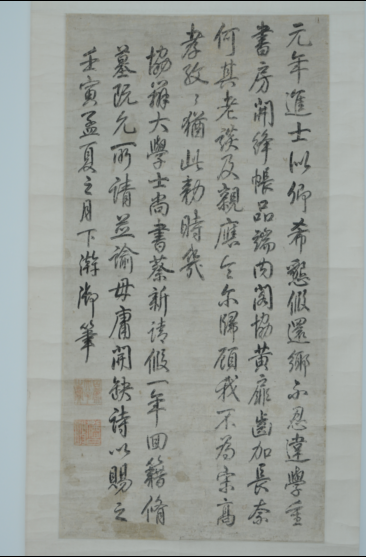 元年進士似卿希懇假還鄉不忍違學重
書房開絳帳品端内閣協黃扉齒加長奈
何其老談及親應令尔歸顧我不為宋高
孝孜〻猶此勅時幾
協辦大學士尚書蔡新請假一年回籍脩
墓既允所請並諭毋庸開缺詩以賜之
壬寅孟夏之月下澣御筆